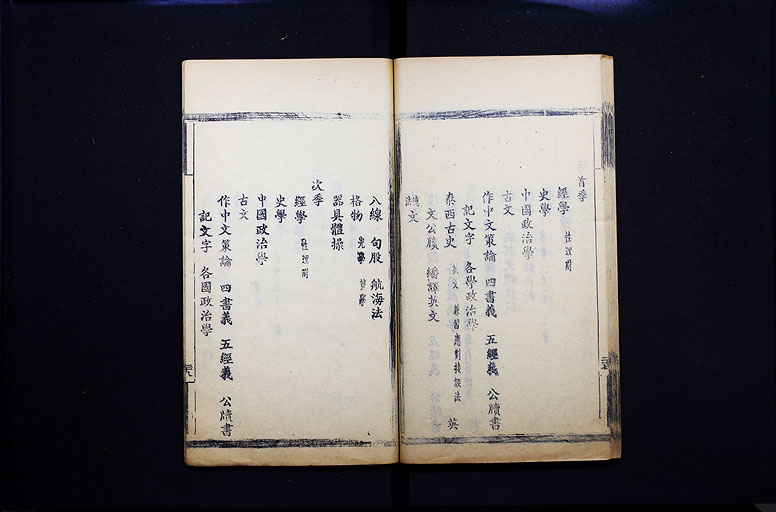 首季
經學 性理附
史學
中國政治學
古文
作中文策論 四書義 五經義 公牘書
記文字 各學政治學
泰西古史 英文 兼習應對接談法 英
文公牘 繙譯英文
法文
八線 句股 航海法
格物 光學
器具體操
次季
經學 性理附
史學
中國政治學
古文
作中文策論 四書義 五經義 公牘書
記文字 各國政治學